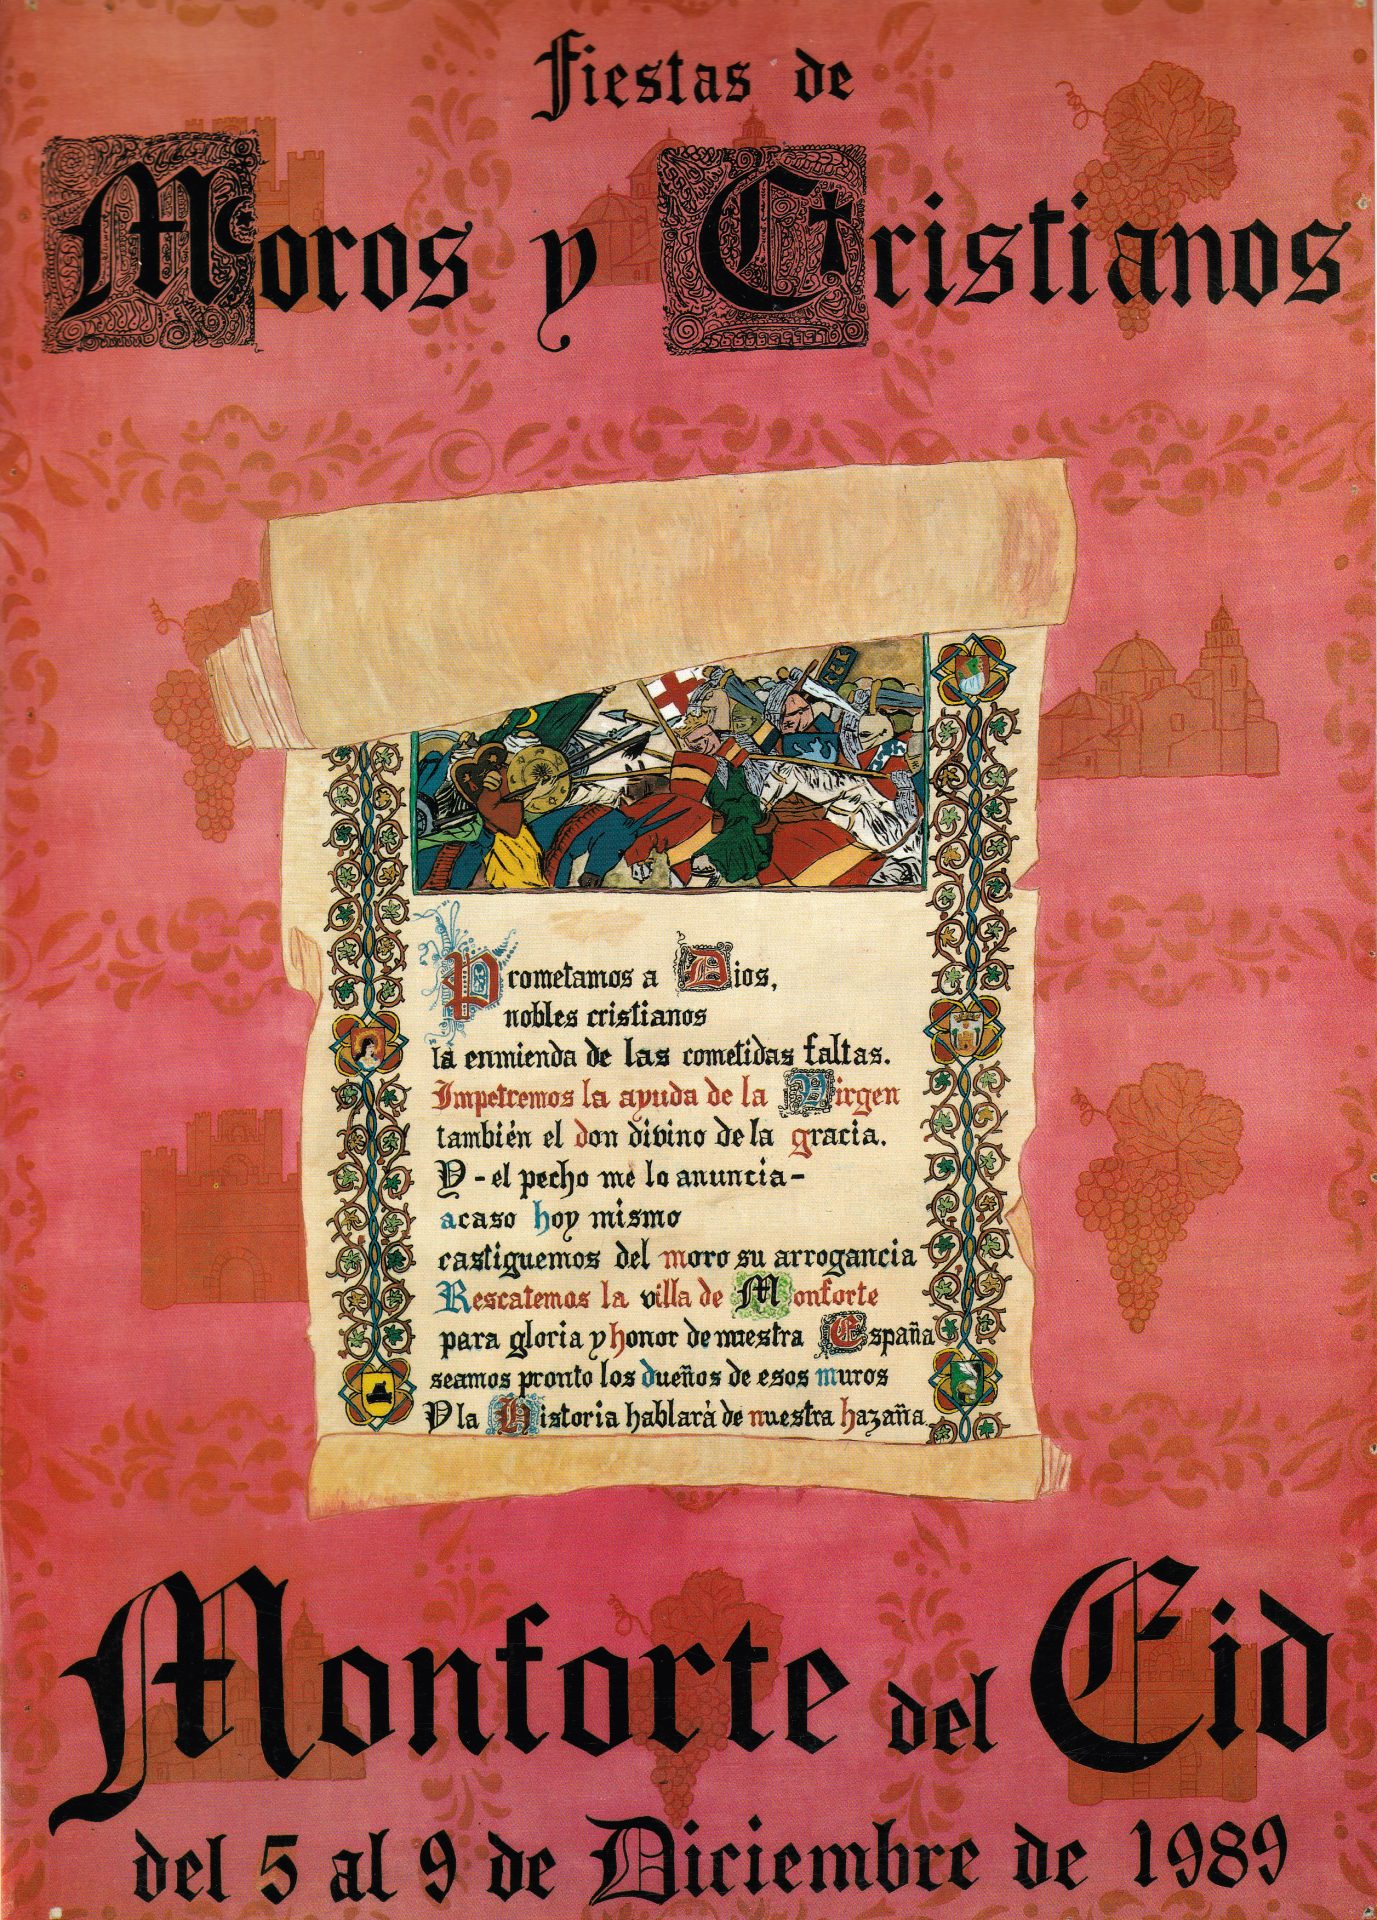 Fiestas de
Moros y Cristianos
Prometamos a Dios,
nobles cristianos
la enmienda de las cometidas faltas.
Impetremos la ayuda de la Virgen
también el don divino de la gracia.
Y - el pecho me lo anuncia -
acaso hoy mismo
castiguemos del moro su arrogancia
Rescatemos la villa de Monforte
para gloria y honor de nuestra España
seamos pronto los dueños de esos muros
Y la Historia hablará de nuestra hazaña.
Monforte del Cid
del 5 al 9 de Diciembre de 1989